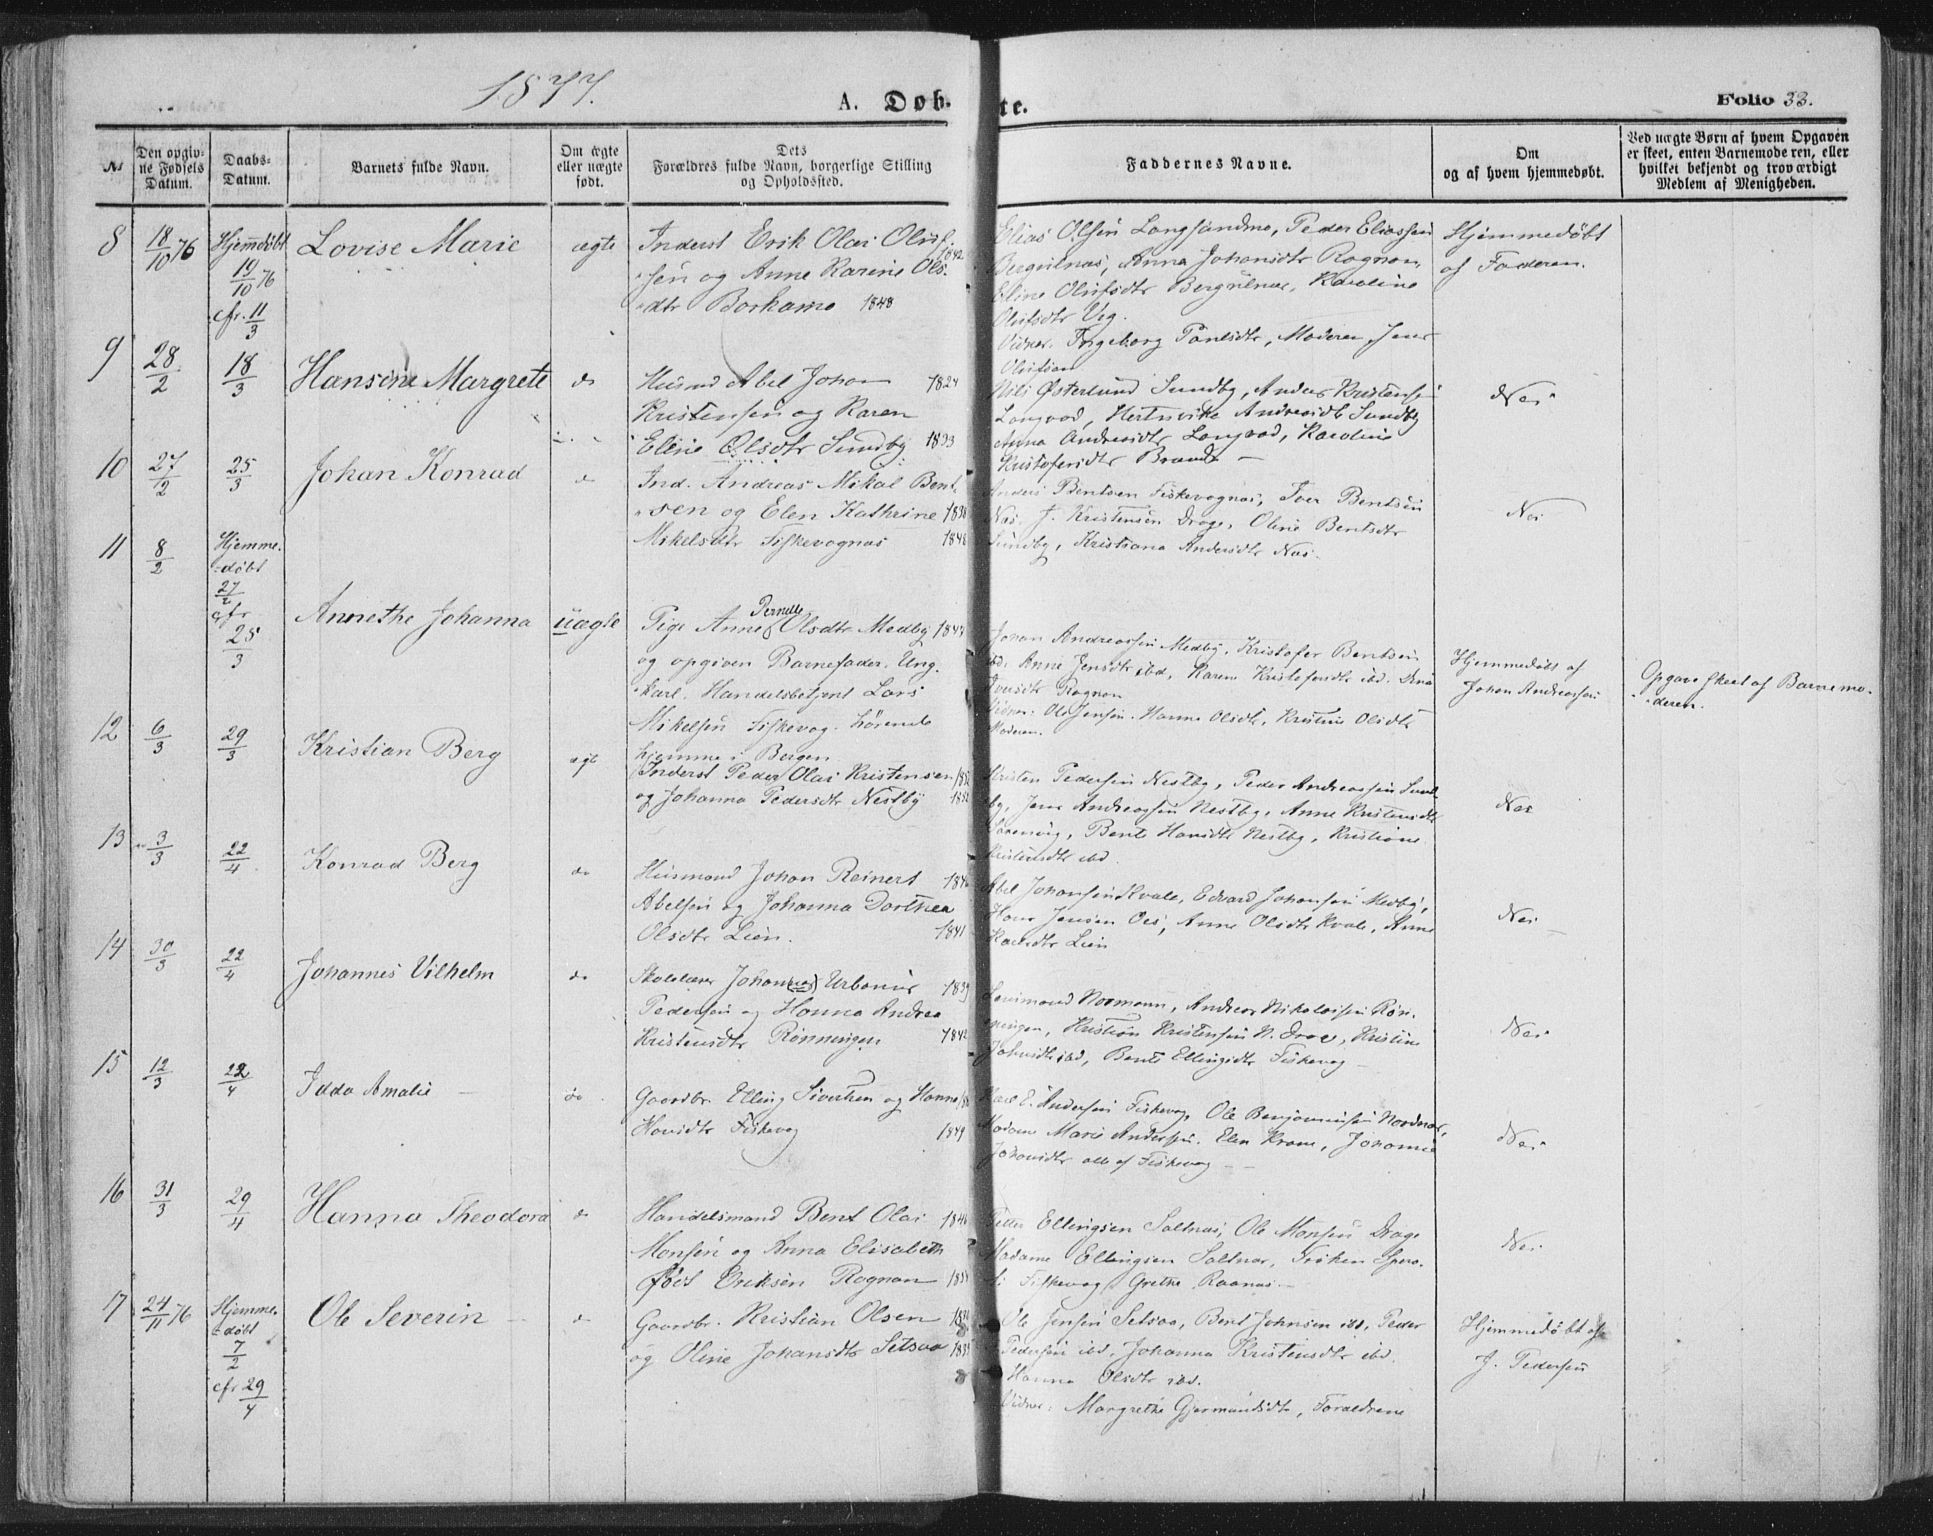 1877.
A. Døb-
te.
Folio 33.
No
Den opgiv-
ne Fødsels
Datum.
Daabs-
Datum.
Barnets fulde Navn.
Om ægte
eller uægte
født.
Dets
Forældres fulde Navn, borgerlige Stilling
og Opholdssted.
Faddernes Navne.
Om
og af hvem hjemmedøbt.
Ved uægte Børn af hvem Opgaven
er skeet, enten Barnemoderen, eller
hvilket bekjendt og troværdigt
Medlem af Menigheden.
8
18/10 76
Hjemdøbt
19/10 76
cfr. 11/3
Lovise Marie
ægte
Inderst Erik Olai Oluf-
sen og Anne Karine Ols- 1842
dtr Borkamo 1848
Elias Olsen Langsandmo, Peder Eliassen
Bergulnæs, Anna Johansdtr Rognan,
Eline Olufsdtr Bergulnæs, Karoline
Olufsdtr Veg.
Vidner: Ingeborg Paulsdtr, Moderen, Jens
Olufsen
Hjemmedøbt
af Faderen.
9
28/2
18/3
Hansine Margrete
do
Husmd Abel Johan 1824
Kristensen og Karen
Eline Olsdtr Sundby 1833
Nils Østerlund Sundby, Anders Kristensen
Langvad, Andreasdtr Sundby
Anna Andreasdtr Langvad, Karoline
Kristofersdtr Brand
Nei
10
27/12
25/3
Johan Konrad
do
Ind. Andreas Mikal Bent-
sen og Elen Kathrine 1838
Mikelsdtr Fiskevognæs 1848
Anders Bentsen Fiskevognæs, Iver Bentsen
Næs, J. Kristensen Drage, Oline Bentsdtr
Sundby, Kristiana Andersdtr Næs.
Nei
11
8/2
Hjemme-
døbt
27/2
cfr
25/3
Annethe Johanna
uægte
Pernelle
Pige Anne Olsdtr Medby 1847
og opgiven Barnefader: Ung-
karl, Handelsbetjent Lars
Mikelsen Fiskevog. hørende
hjemme i Bergen
Johan Andreassen Medby, Kristofer Bentsen
ibd. Anne Jensdtr ibd, Karen Kristofersdtr ibd. Dina
Iversdtr Rognan
Vidner: Ole Jensen. Hanna Olsdtr, Kristine Olsdtr
Moderen.
Hjemmedøbt af
Johan Andreassen
Opgave skeet af Barnemo-
deren.
12
6/3
29/3
Kristian Berg
ægte
Inderst Peder Olai Kristensen
og Johanna Pedersdtr Nestby
Kristen Pedersen Nestby, Peder Andreassen Sund-
by, Jens Andreassen Nestby, Anne Kristensdtr
Bente Hansdtr Nestby, Kristiane
Kristensdtr ibd.
Nei
13
3/3
22/4
Konrad Berg
do
Husmand Johan Reinert
Abelsen og Johanna Dorthea
Olsdtr Lien. 1841
Abel Johansen Kvale, Edvard Johansen Medby,
Hans Jensen Oes, Anne Olsdtr Kvale, Anne
Hansdtr Lien
Nei
14
30/3
22/4
Johannes Vilhelm
do
Skolelærer Johan(nes) Urbanus 1839
Pedersen og Hanna Andrea
Kristensdtr Rønningen 1842
Normann, Andreas Nikolaisen Røn-
ningen, Kristian Kristensen N. Drage, Kristine
Johnsdtr ibd, Bente Ellingsdtr Fiskevog
Nei
15
12/3
22/4
Idda Amalie
do
Gaardbr. Elling Sivertsen og Hanna
Hansdtr Fiskevog 1849
Karl E. Andersen Fiskevog, Ole Benjaminsen Nordnæs,
Madam Marie Andersen. Elen Krane, Johanna
Johansdtr alle af Fiskevog
Nei
16
31/3
29/4
Hanna Theodora
do
Handelsmand Bent Olai 1846
Monsen og Anna Elisabeth
født Eriksen Rognan
Peder Ellingsen Saltnæs, Ole Monsen Drage
Madame Ellingsen Saltnæs, Frøken
Fiskevog Grethe Raanæs
Nei
17
24/11 76
Hjemme-
døbt
7/2
cfr 29/4
Ole Severin
do
Gaardbr. Kristian Olsen
og Oline Johansdtr Setsaa
Ole Jensen Setsaa, Bent Johnsen ibd, Peder
Pedersen ibd, Johanna Kristensdtr ibd.
Hanna Olsdtr ibd.
Vidner: Margrethe Gjermundsdtr, Forældrene
Hjemmedøbt af
J. Pedersen